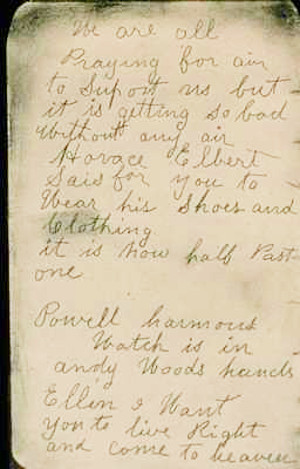 We are all
Praying for air
to Suport us but
it is getting so bad
without any air
Horace Elbert
Said for you to
Wear his Shoes and
Clothing
it is now half Past
one
Powell harmons
Watch is in
andy Woods hands
Ellen I Want
you to live Right
and come to heaven